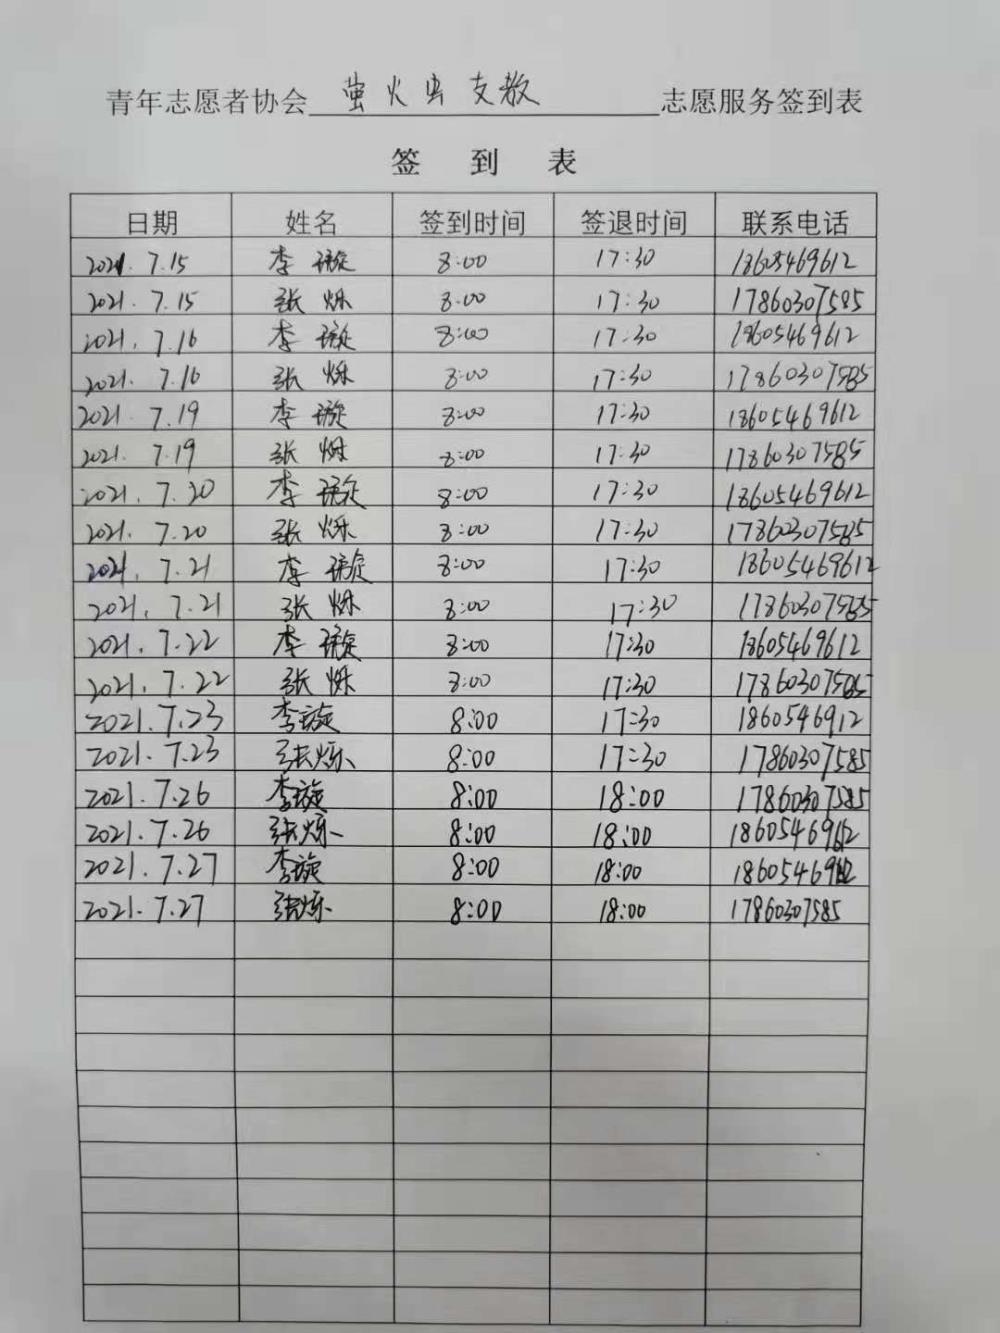 青年志愿者协会 萤火虫支教 志愿服务签到表
签 到 表
日期 姓名 签到时间 签退时间 联系电话
2021. 7.15 李 璇 8:00 17:30 18605469612
2021. 7.15 张 烁 8:00 17:30 17860307585
2021. 7.16 李 璇 8:00 17:30 18605469612
2021. 7.16 张 烁 8:00 17:30 17860307585
2021. 7.19 李 璇 8:00 17:30 18605469612
2021. 7.19 张 烁 8:00 17:30 17860307585
2021. 7.20 李 璇 8:00 17:30 18605469612
2021. 7.20 张 烁 8:00 17:30 17860307585
2021. 7.21 李 璇 8:00 17:30 18605469612
2021. 7.21 张 烁 8:00 17:30 17860307585
2021. 7.22 李 璇 8:00 17:30 18605469612
2021. 7.22 张 烁 8:00 17:30 17860307585
2021. 7.23 李璇 8:00 17:30 1860546912
2021. 7.23 张烁 8:00 17:30 17860307585
2021. 7.26 李璇 8:00 18:00 17860307585
2021. 7.26 张烁 8:00 18:00 18605469612
2021. 7.27 李璇 8:00 18:00 18605469612
2021. 7.27 张烁 8:00 18:00 17860307585